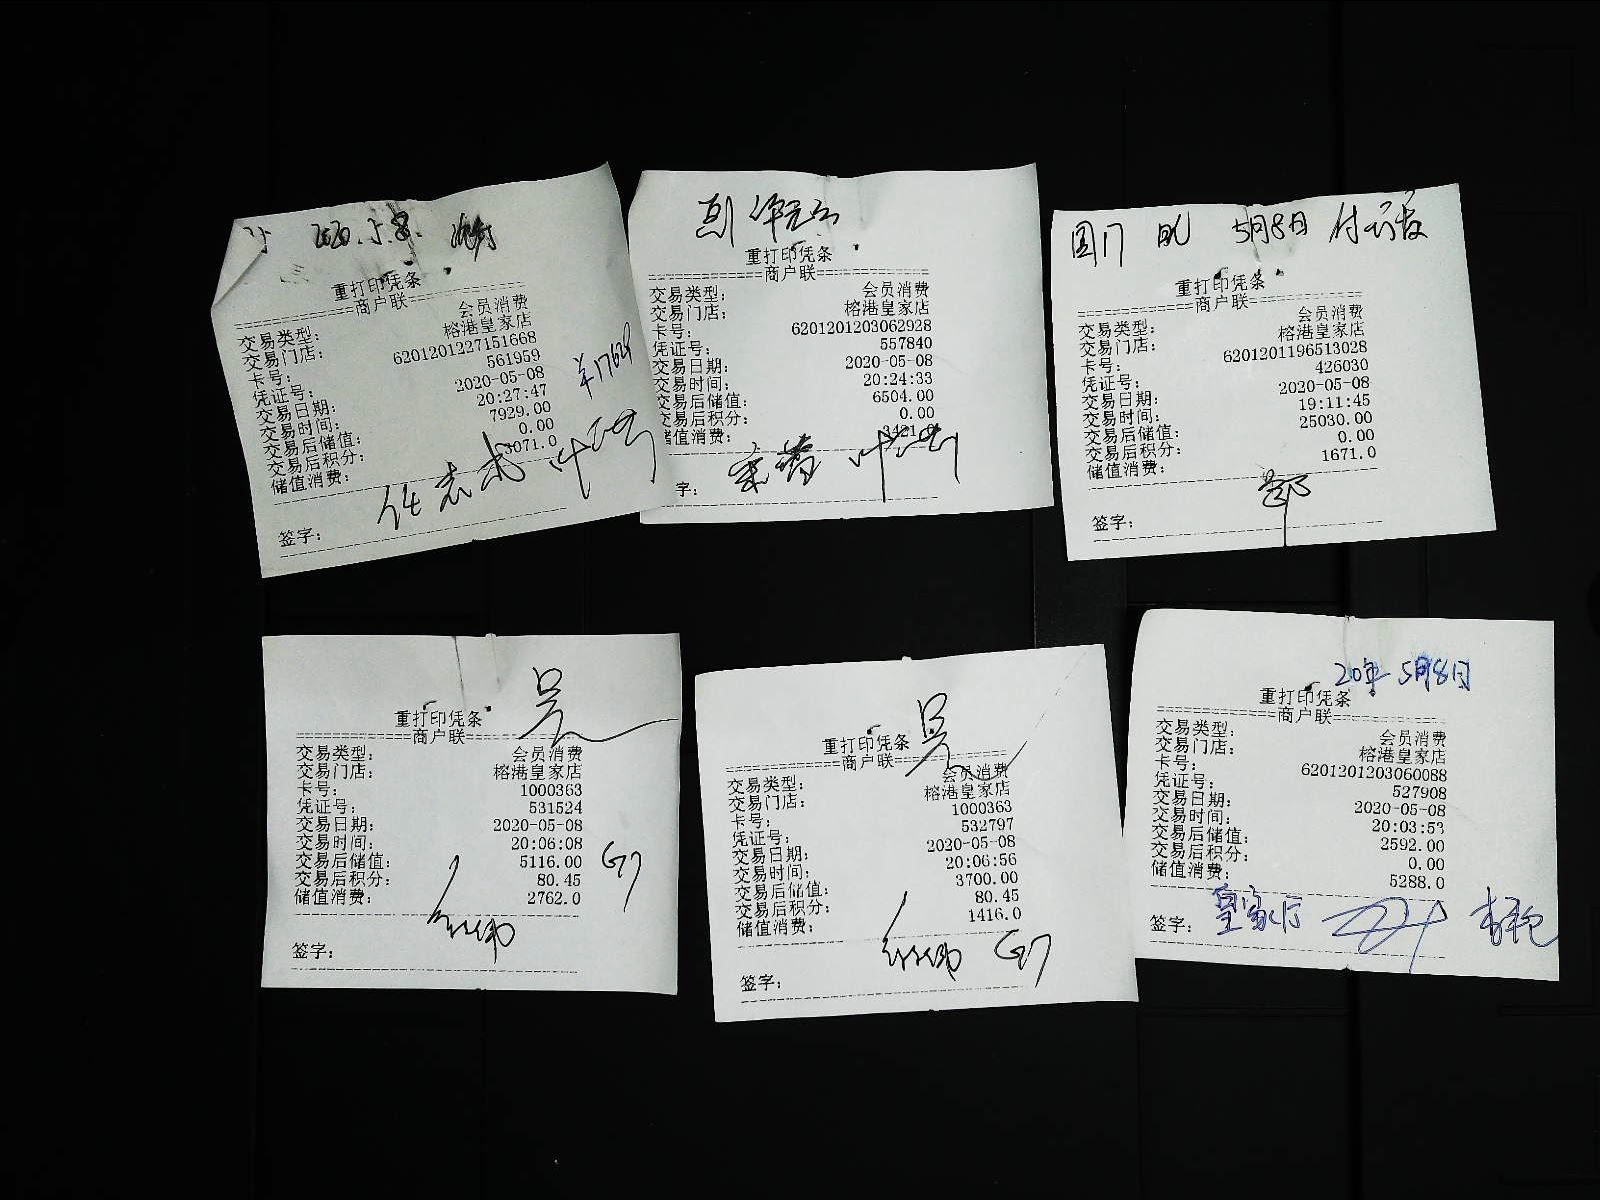 2020.5.8.
重打印凭条
商户联
交易类型: 会员消费
交易门店: 榕港皇家店
卡号: 6201201227151668
凭证号: 561959
交易日期: 2020-05-08
交易时间: 20:27:47
交易后储值: 7929.00
交易后积分: 0.00
储值消费: 3071.0
签字:
重打印凭条
商户联
交易类型: 会员消费
交易门店: 榕港皇家店
卡号: 6201201203062928
凭证号: 557840
交易日期: 2020-05-08
交易时间: 20:24:33
交易后储值: 6504.00
交易后积分: 0.00
储值消费: 3421.0
字:
5月8日
重打印凭条
商户联
交易类型: 会员消费
交易门店: 榕港皇家店
卡号: 6201201196513028
凭证号: 426030
交易日期: 2020-05-08
交易时间: 19:11:45
交易后储值: 25030.00
交易后积分: 0.00
储值消费: 1671.0
签字:
吴
重打印凭条
商户联
交易类型: 会员消费
交易门店: 榕港皇家店
卡号: 1000363
凭证号: 531524
交易日期: 2020-05-08
交易时间: 20:06:08
交易后储值: 5116.00
交易后积分: 80.45
储值消费: 2762.0
签字:
吴
重打印凭条
商户联
交易类型: 会员消费
交易门店: 榕港皇家店
卡号: 1000363
凭证号: 532797
交易日期: 2020-05-08
交易时间: 20:06:56
交易后储值: 3700.00
交易后积分: 80.45
储值消费: 1416.0
签字:
20年5月8日
重打印凭条
商户联
交易类型: 会员消费
交易门店: 榕港皇家店
卡号: 6201201203060088
凭证号: 527908
交易日期: 2020-05-08
交易时间: 20:03:53
交易后储值: 2592.00
交易后积分: 0.00
储值消费: 5288.0
签字: 皇家厅